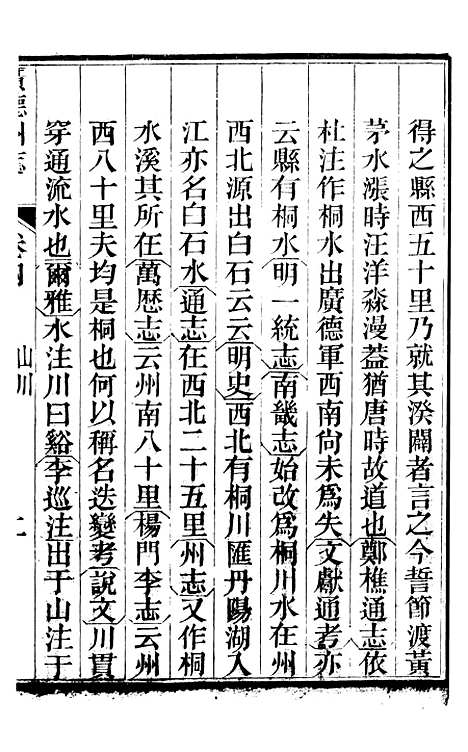 得之縣西五十里乃就其湀闢者言之今誓節渡黃
茅水漲時汪洋淼漫葢猶唐時故道也鄭樵通志依
杜注作桐水出廣德軍西南尙未爲失文獻通考亦
云縣有桐水明一統志南畿志始改爲桐川水在州
西北源出白石云云明史西北有桐川匯丹陽湖入
江亦名白石水通志在西北二十五里州志又作桐
水溪其所在萬歷志云州南八十里楊門李志云州
西八十里夫均是桐也何以稱名迭變考說文川貫
穿通流水也爾雅水注川曰谿李巡注出于山注于
廣德州志
卷四
山川
二